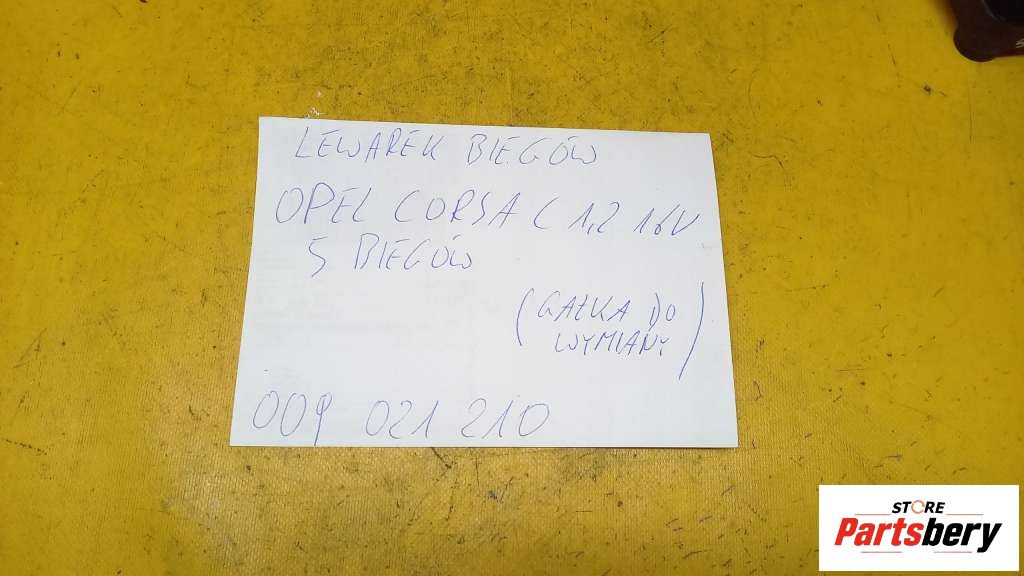 LEWAREK BIEGÓW
OPEL CORSA C 1,2 16V
5 BIEGÓW
(GAŁKA DO
WYMIANY)
009 021 210
STORE
Partsbery